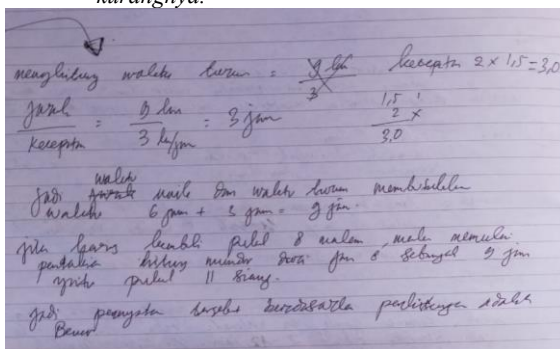 karangnya.
menghitung waktu turun = 9 km / 3 kecepatan 2 × 1,5 = 3,0
jarak / kecepatan = 9 km / 3 km/jam = 3 jam
1,5
2 ×
3,0
waktu
Jadi naik dan waktu turun membutuhkan
waktu 6 jam + 3 jam = 9 jam.
jika harus kembali pukul 8 malam, maka memulai
pendakian dihitung mundur dari jam 8 sebanyak 9 jam
yaitu pukul 11 siang.
Jadi pernyataan tersebut berdasarkan perhitungan adalah
Benar